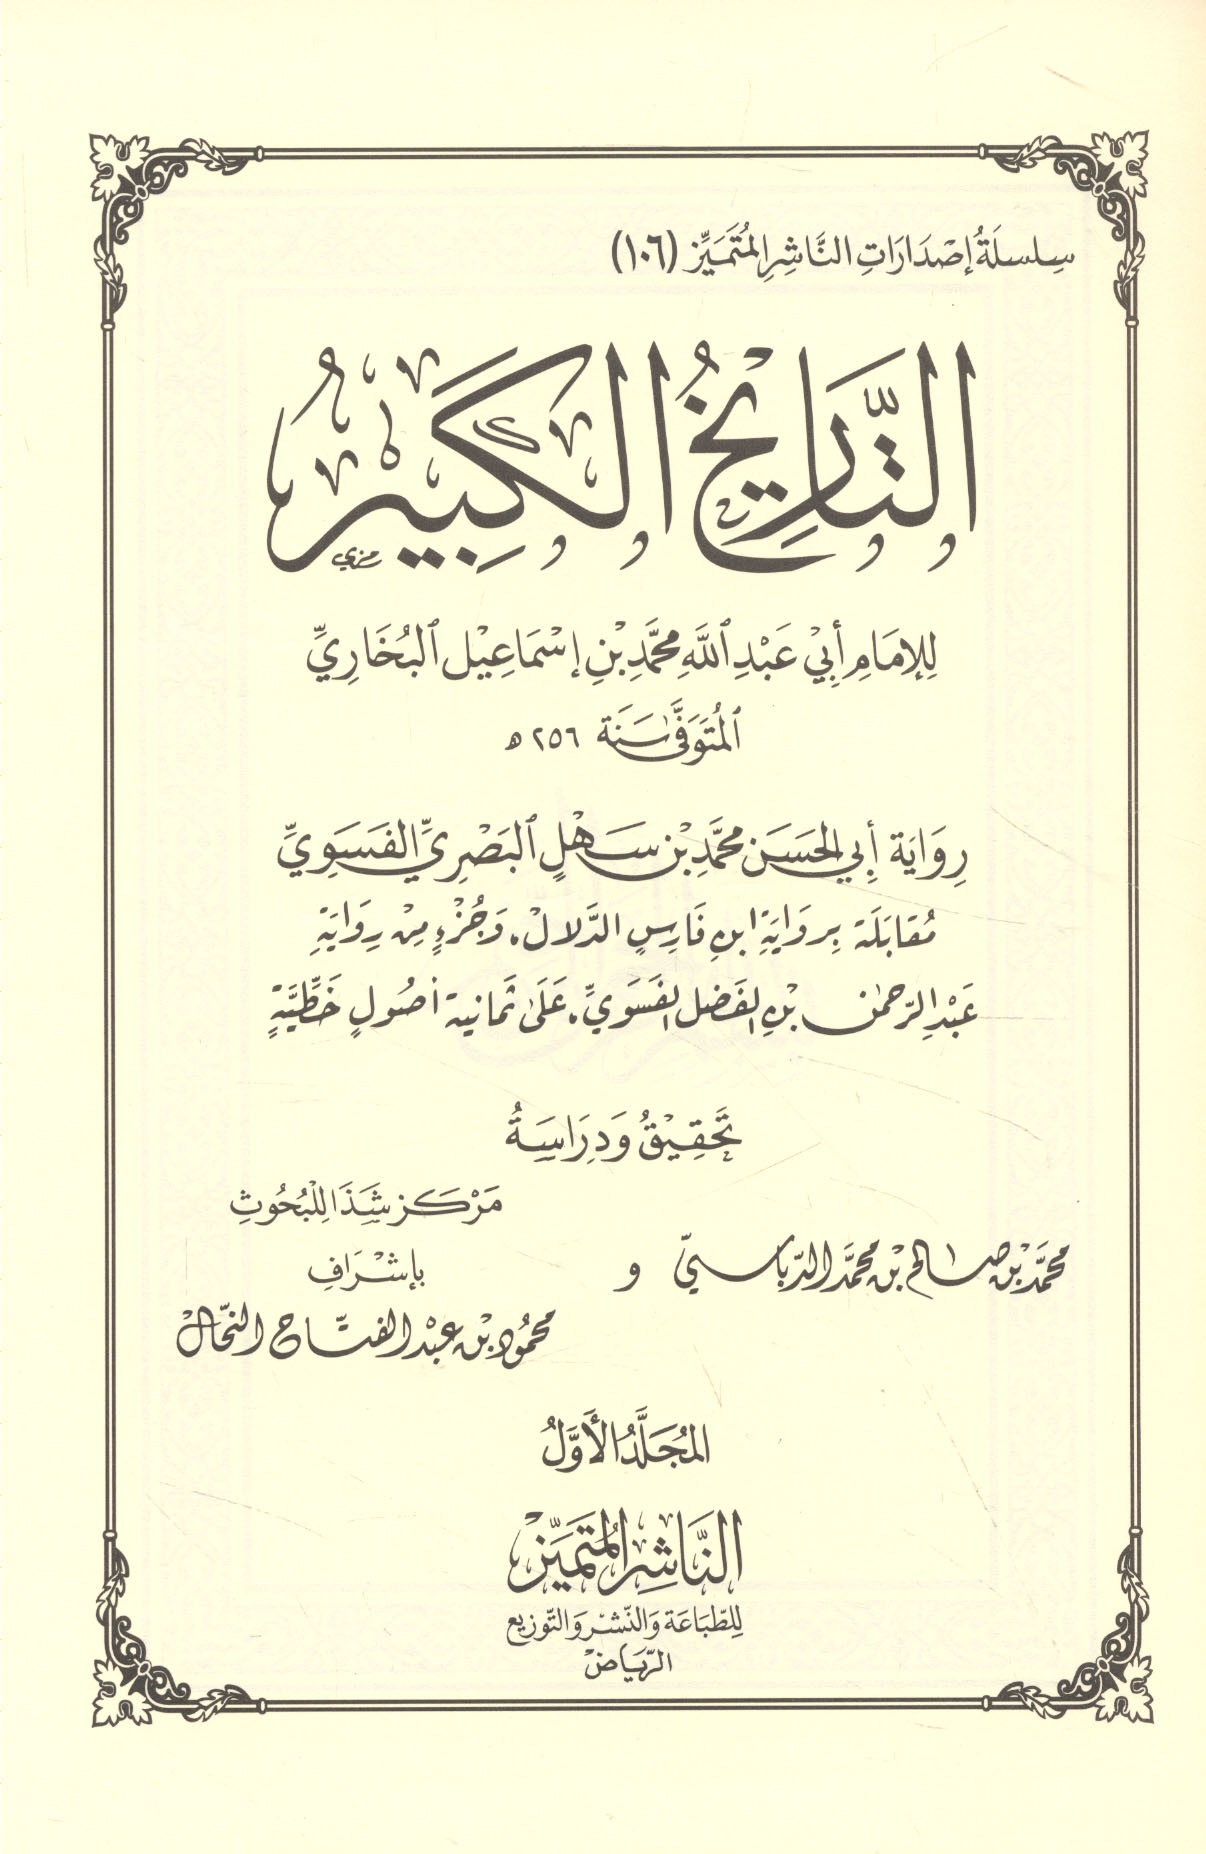 سِلسلَةُ إصْدَارَاتِ النَّاشِرِ المُتَمَيِّز (١٠٦)
التَّارِيخُ الكَبِيرُ
لِلإمَامِ أَبِيْ عَبْدِ اللَّهِ مُحمَّدِ بْنِ إسْمَاعِيْل البُخَارِيِّ
المُتَوَفَّىٰ سَنَة ٢٥٦ ه
رِوَايَة أَبِي الحَسَن مُحمَّدِ بْن سَهْلٍ البَصْرِيِّ الفَسَوِيِّ
مُقَابَلَة بِروَايَةِ ابنِ فَارِسٍ الدَّلالْ، وَجُزْءٍ مِنْ رِوَايَةِ
عَبْدِ الرَّحمٰن بْنِ الفَضل الفَسَوِيِّ، عَلَىٰ ثَمانية أصُولٍ خَطِّيَّةٍ
تَحْقِيْقُ وَدِرَاسَةُ
مَرْكَز شَذَا لِلْبُحُوثِ
محمَّد بْن صَالح بْن محمَّد الدّبَاسيّ و
بإشْرَافِ
محمُود بْن عبْد الفتَّاح النّحَّال
المُجَلَّدُ الأَوَّلُ
النَّاشِر المُتَمَيِّز
لِلطّبَاعَة وَالنّشْر وَالتّوزيع
الرّيَاض